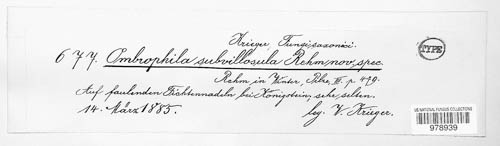 Krieger, Fungi saxonici.
677. Ombrophila subvillosula Rehm, nov. spec.
Rehm in Winter, Pilze, III. p. 479.
Auf faulenden Fichtennadeln bei Königstein, sehr selten.
14. März 1885.
leg. W. Krieger.
TYPE
US NATIONAL FUNGUS COLLECTIONS
978939